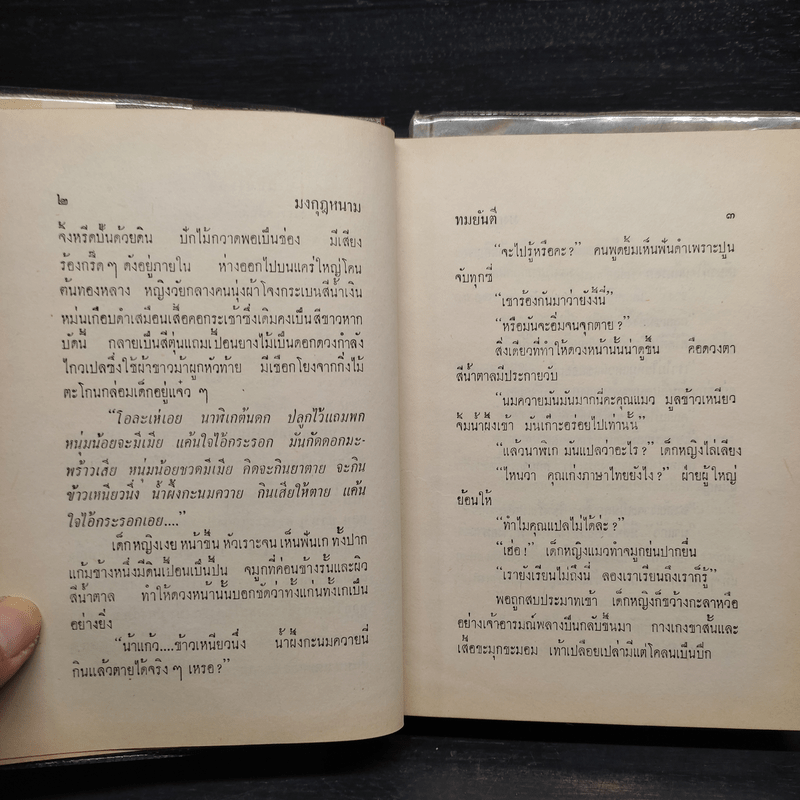 ๒ มงกุฎหนาม
จิ้งหรีดปั้นด้วยดิน ปักไม้กวาดพอเป็นช่อง มีเสียง
ร้องกริ๊ด ๆ ดังอยู่ภายใน ห่างออกไปบนแคร่ใหญ่โคน
ต้นทองหลาง หญิงวัยกลางคนนุ่งผ้าโจงกระเบนสีน้ำเงิน
หม่นเกือบดำเสมือนเสื้อคอกระเช้าซึ่งเดิมคงเป็นสีขาวหาก
บัดนี้ กลายเป็นสีตุ่นแถมเปื้อนยางไม้เป็นดอกดวงกำลัง
ไกวเปลซึ่งใช้ผ้าขาวม้าผูกหัวท้าย มีเชือกโยงจากกิ่งไม้
ตะโกนกล่อมเด็กอยู่แจ๋ว ๆ
“โอละเห่เอย นาพิเกต้นดก ปลูกไว้แถมพก
หนุ่มน้อยจะมีเมีย แค้นใจไอ้กระรอก มันกัดดอกมะ-
พร้าวเสีย หนุ่มน้อยขวดมีเมีย คิดจะกินยาตาย จะกิน
ข้าวเหนียวนึ่ง น้ำผึ้งกะนมควาย กินเสียให้ตาย แค้น
ใจไอ้กระรอกเอย....”
เด็กหญิงเงย หน้าขึ้น หัวเราะจน เห็นฟันเก ทั้งปาก
แก้มข้างหนึ่งมีดินเปื้อนเป็นปื้น จมูกที่ค่อนข้างรั้นและผิว
สีน้ำตาล ทำให้ดวงหน้านั้นบอกชัดว่าทั้งแก่นทั้งเกเป็น
อย่างยิ่ง
“น้าแก้ว....ข้าวเหนียวนึ่ง น้ำผึ้งกะนมควายนี่
กินแล้วตายได้จริง ๆ เหรอ?”
ทมยันตี ๓
“จะไปรู้หรือคะ?” คนพูดยิ้มเห็นฟันดำเพราะปูน
จับทุกซี่
“เขาร้องกันมาว่ายังงี้นี่”
“หรือมันจะอิ่มจนจุกตาย?”
สิ่งเดียวที่ทำให้ดวงหน้านั้นน่าดูขึ้น คือดวงตา
สีน้ำตาลมีประกายวับ
“นมควายมันมันมากนี่คะคุณแมว มูลข้าวเหนียว
จิ้มน้ำผึ้งเข้า มันเก๊าะอร่อยไปเท่านั้น”
“แล้วนาพิเก มันแปลว่าอะไร?” เด็กหญิงไล่เลียง
“ไหนว่า คุณเก่งภาษาไทยยังไง?” ฝ่ายผู้ใหญ่
ย้อนให้
“ทำไมคุณแปลไม่ได้ล่ะ?”
“เฮ่อ!” เด็กหญิงแมวทำจมูกย่นปากยื่น
“เรายังเรียนไม่ถึงนี่ ลองเราเรียนถึงเราก็รู้”
พอถูกสบประมาทเข้า เด็กหญิงก็ขว้างกะลาหวือ
อย่างเจ้าอารมณ์พลางปีนกลับขึ้นมา กางเกงขาสั้นและ
เสื้อขะมุกขะมอม เท้าเปลือยเปล่ามีแต่โคลนเป็นปึก